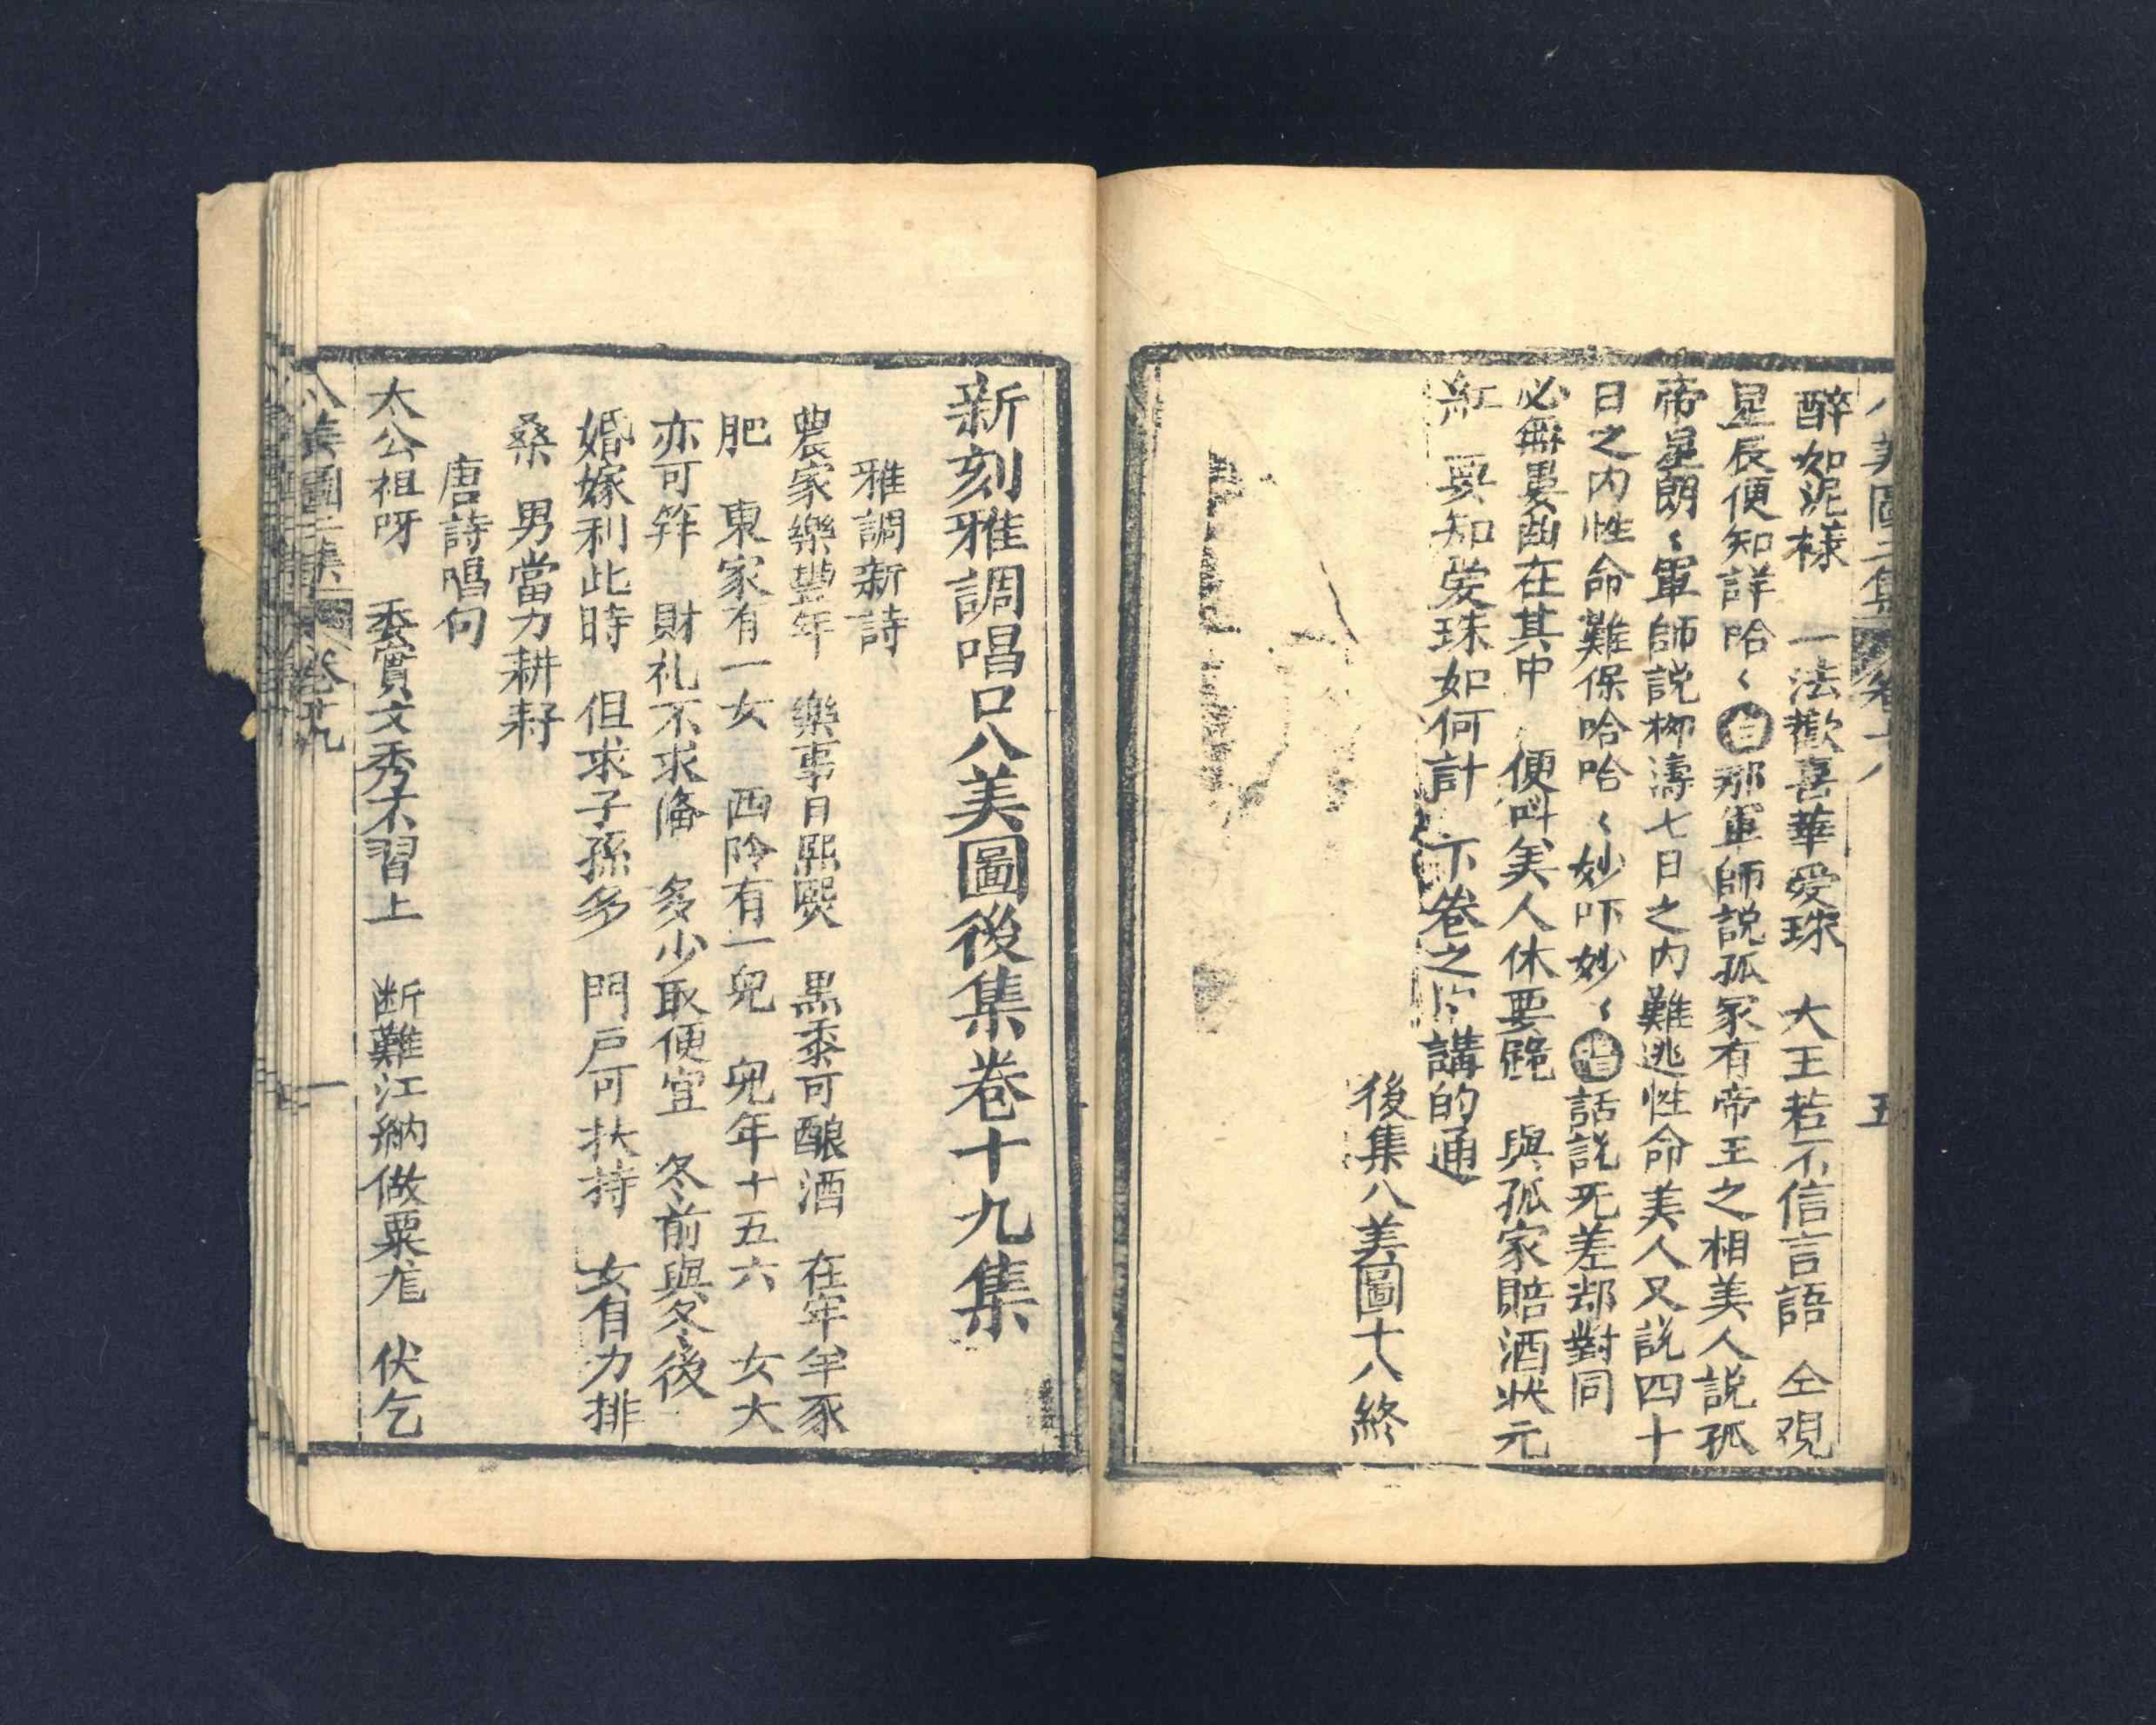 八美圖二集 卷十八 五
醉如泥樣 一法歡喜華愛珠 大王若不信言語 仝观
星辰便知詳哈〻白那軍師説孤家有帝王之相美人説孤
帝星朗〻軍師説柳濤七日之内難逃性命美人又説四十
日之内性命難保哈哈哈〻妙吓妙〻唱話説死差却對同
必無異曲在其中 便叫美人休要跪 與孤家賠酒狀元
紅 要知愛珠如何計 下卷之内講的通
後集八美圖十八終
新刻雅調唱口八美圖後集卷十九集
雅調新詩
農家樂豐年 樂事日熙熙 黒黍可釀酒 在年羊豕
肥 東家有一女 西阾有一兒 兒年十五六 女大
亦可笄 財礼不求俻 多少取便宜 冬前與冬後
婚嫁利此時 但求子孫多 門戸可扶持 女自力排
桑 男當力耕耔
唐詩唱句
太公祖呀 委實文秀不習上 断難江納做粟 伏乞
八美圖二集 卷十九 一